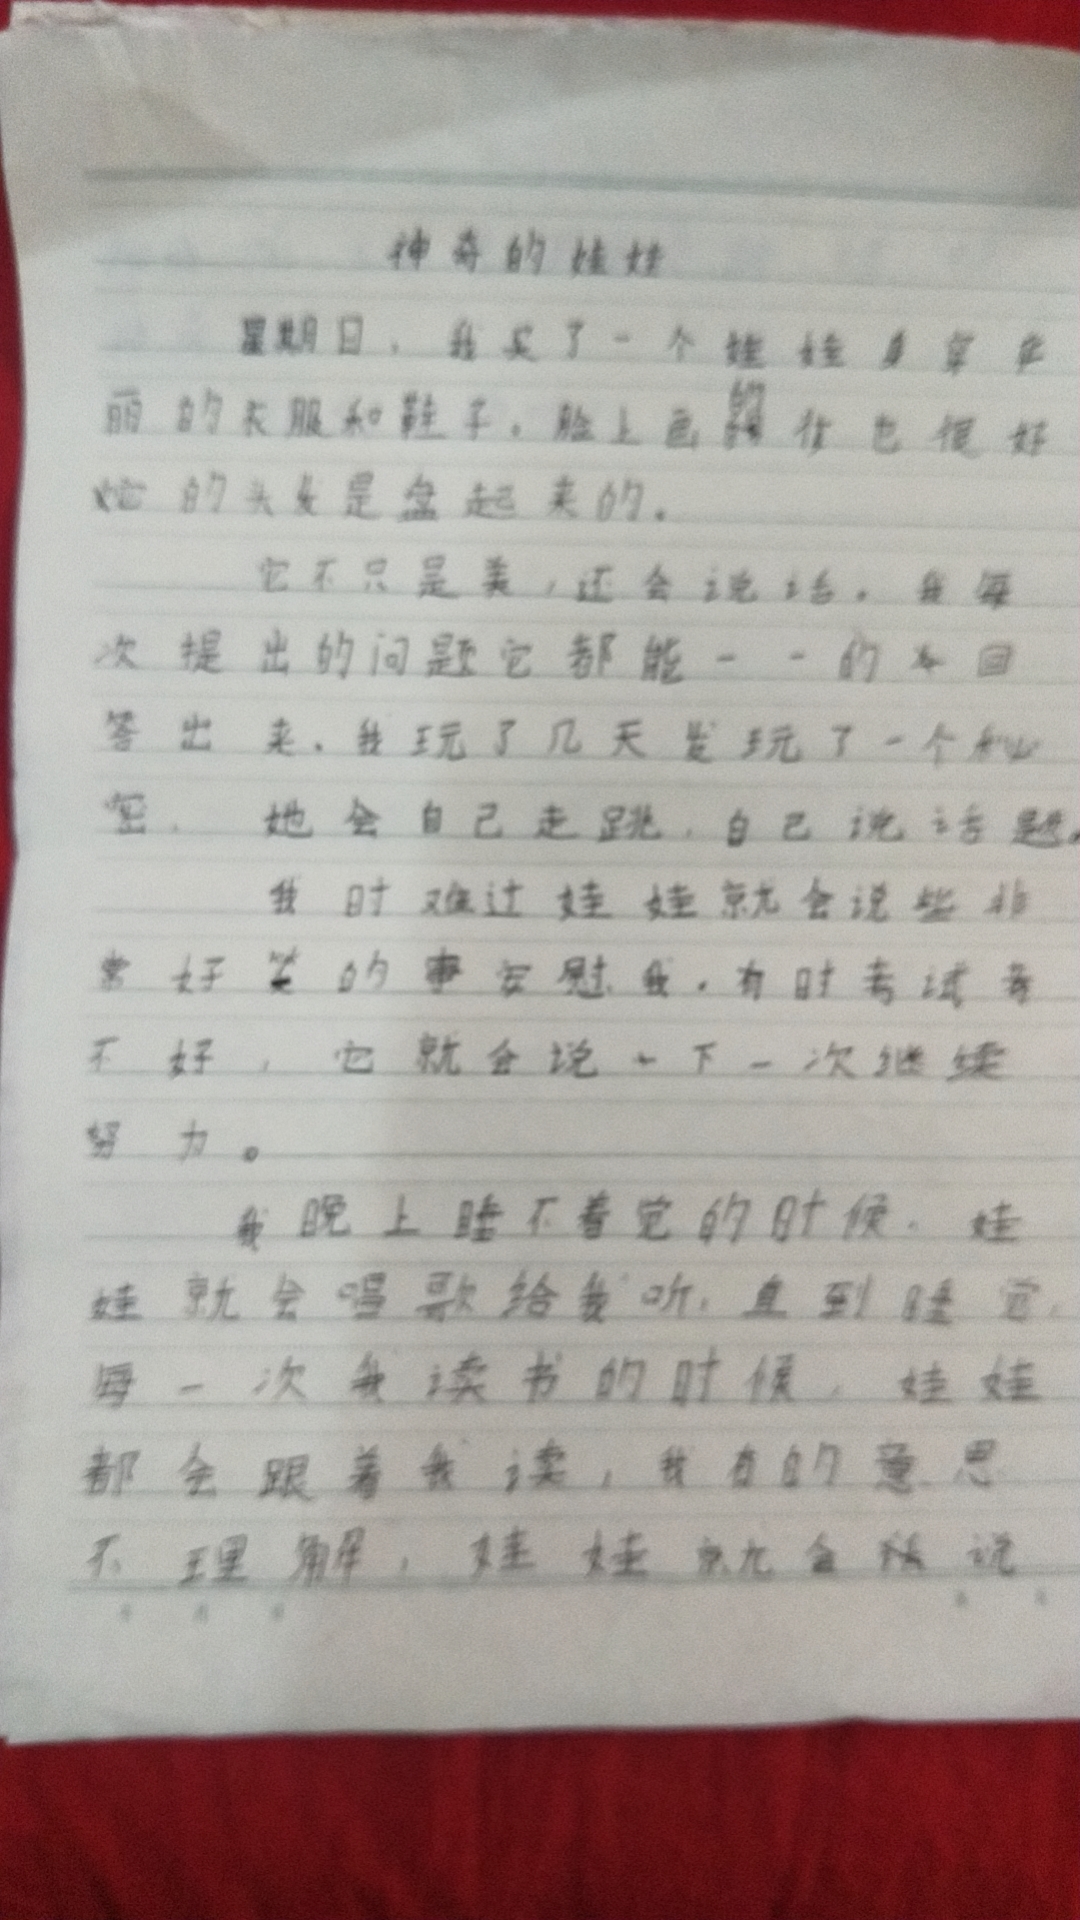 神奇的娃娃
星期日，我买了一个娃娃身穿华
丽的衣服和鞋子。脸上画的妆也很好
她的头发是盘起来的。
它不只是美，还会说话。我每
次提出的问题它都能一一的回
答出来。我玩了几天发玩了一个秘
密，她会自己走跳，自己说话题。
我时难过娃娃就会说些非
常好笑的事安慰我。有时考试考
不好，它就会说一下一次继续
努力。
我晚上睡不着觉的时候，娃
娃就会唱歌给我听，直到睡觉，
每一次我读书的时候，娃娃
都会跟着我读，我有的意思
不理解，娃娃就会说